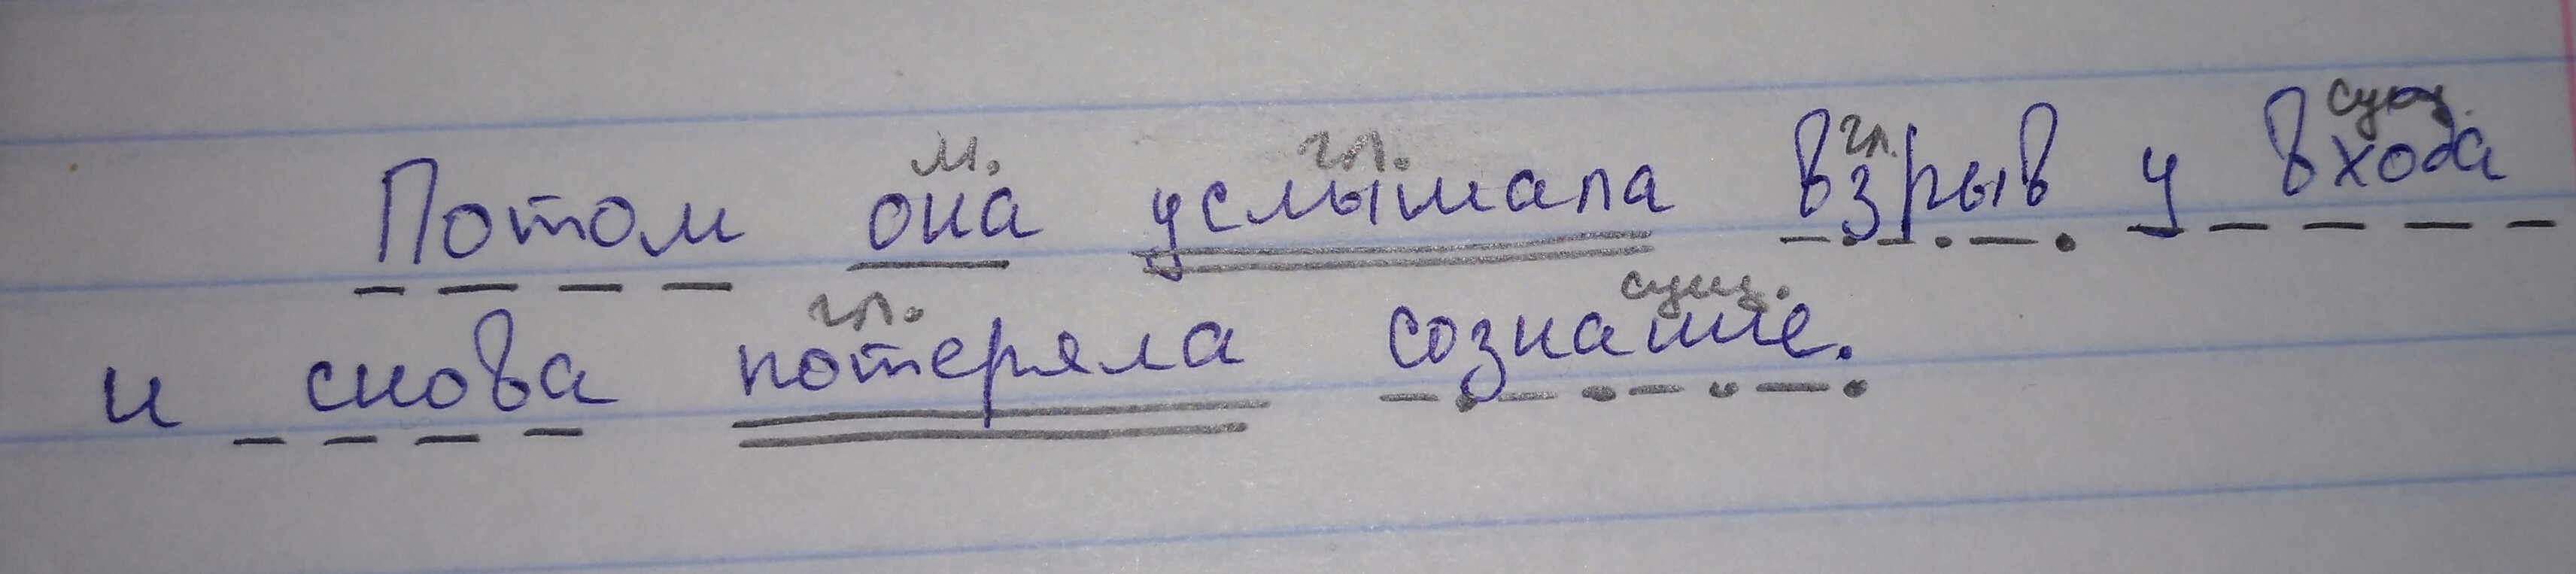 м. гл. гл. сущ.
Потом она услышала взрыв у входа
гл. сущ.
и снова потеряла сознание.